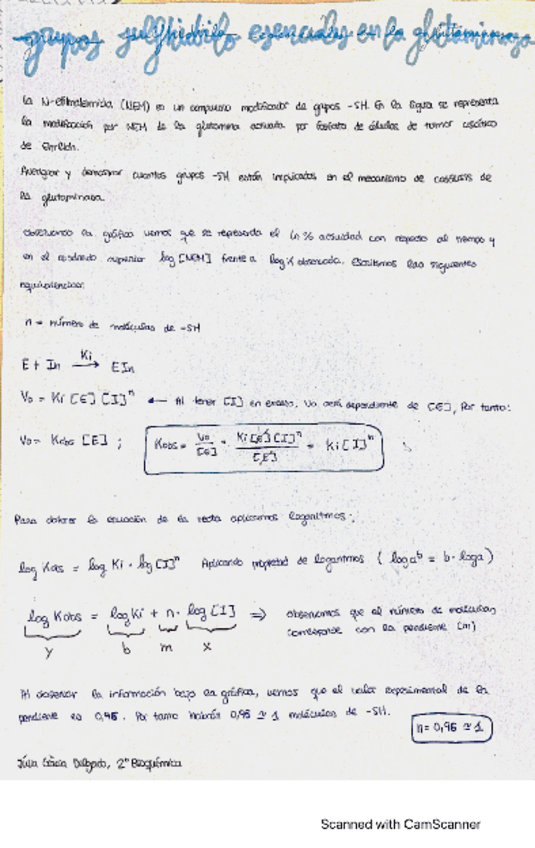 grupos sulfhidrilo esenciales en la glutaminasa
La N-etilmaleimida (NEM) es un compuesto modificador de grupos -SH. En la figura se representa
la modificación por NEM de la glutamina activada por fosfato de células de tumor ascítico
de Ehrlich.
Averiguar y demostrar cuantos grupos -SH están implicados en el mecanismo de catálisis de
la glutaminasa.
Observando la gráfica vemos que se representa el ln % actividad con respecto al tiempo y
en el cuadrado superior log [NEM] frente a log K observada. Escribimos las siguientes
equivalencias:
n = número de moléculas de -SH
E + In —Ki→ EIn
V₀ = Ki [E] [I]ⁿ ← Al tener [I] en exceso, V₀ será dependiente de [E], Por tanto:
V₀ = Kobs [E] ; Kobs = V₀/[E] = Ki [E] [I]ⁿ/[E] = Ki [I]ⁿ
Para obtener la ecuación de la recta aplicamos logaritmos:
log Kobs = log Ki · log [I]ⁿ Aplicando propiedad de logaritmos ( log aᵇ = b · log a )
log Kobs = log Ki + n · log [I] ⇒ observamos que el número de moléculas
corresponde con la pendiente (m)
y b m x
Al observar la información bajo la gráfica, vemos que el valor experimental de la
pendiente es 0,95. Por tanto habrán 0,95 ≃ 1 moléculas de -SH.
n = 0,95 ≃ 1
Delgado, 2º Bioquímica
Scanned with CamScanner